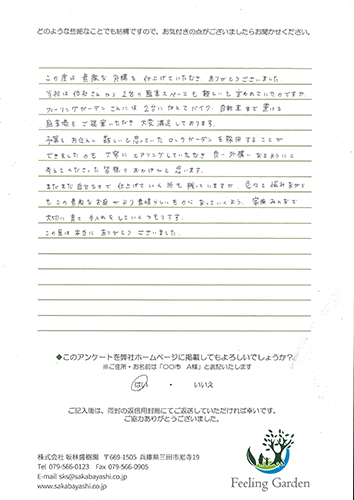 どのような些細なことでも結構ですので、お気付きの点がございましたらお聞かせください。
この度は 素敵な 外構を 仕上げていただき ありがとうございました。
当初は 他社さんから 2台の駐車スペースも 難しいと 言われていたのですが、
フィーリングガーデンさんには 2台に加えてバイク、自転車まで置ける
駐車場を ご提案いただき 大変満足しております。
予算も お伝えし 難しいと思っていた ロックガーデンを 採用することが
できましたのも 丁寧に ヒアリングしていただき 良い外構になるようにと
考えてくださった 皆様の おかげかと 思います。
まだまだ 自分たちで 仕上げていく所も 残っていますが、色々と 悩みながら
も この素敵なお庭が より素晴らしいものに なっていくよう、家族みんなで
大切に 育て 手入れを していくつもりです。
この度は本当に ありがとう ございました。
◆このアンケートを弊社ホームページに掲載してもよろしいでしょうか?
※ご住所・お名前は「〇〇市 A様」と表記いたします
はい ・ いいえ
ご記入後は、同封の返信用封筒にてご返送していただければ幸いです。
ご協力ありがとうございました。
株式会社 坂林盛樹園 〒669-1505 兵庫県三田市尼寺19
Tel 079-566-0123 Fax 079-566-0213
E-mail sks@sakabayashi.co.jp
www.sakabayashi.co.jp
Feeling Garden